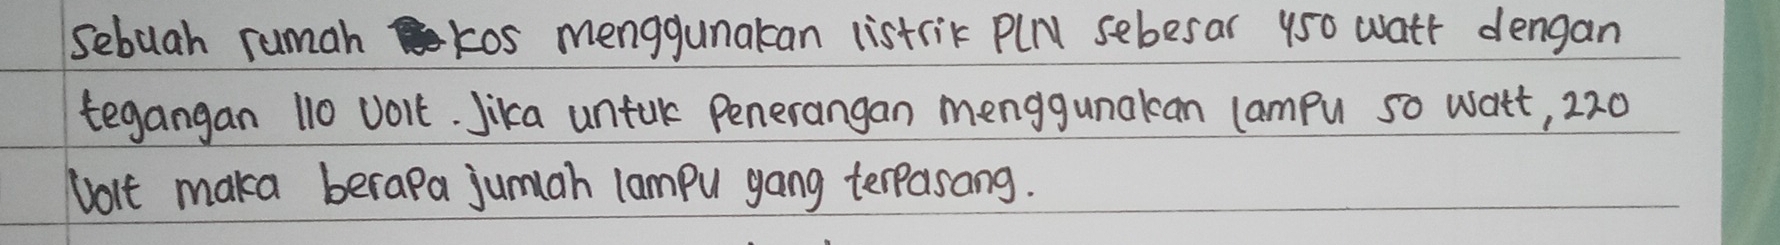 Sebuah rumah kos menggunakan listrik PLN sebesar 450 watt dengan
tegangan 110 Volt. Jika untuk Penerangan menggunakan lampu 50 watt, 220
Volt maka berapa jumlah lampu yang terpasang.